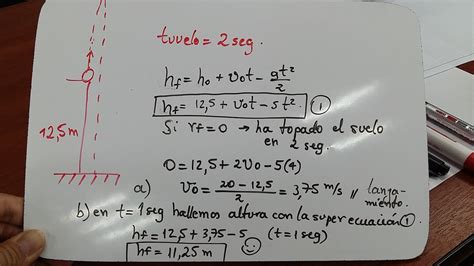 tvuelo = 2 seg.
hf = h0 + v0t - gt²/2
hf = 12,5 + v0t - 5t². ①
Si rf = 0 → ha topado el suelo
en 2 seg.
12,5m
0 = 12,5 + 2v0 - 5(4)
a) v0 = (20 - 12,5)/2 = 3,75 m/s // lanza-
miento.
b) en t = 1seg hallemos altura con la super ecuación ①
hf = 12,5 + 3,75 - 5 (t = 1seg)
hf = 11,25 m